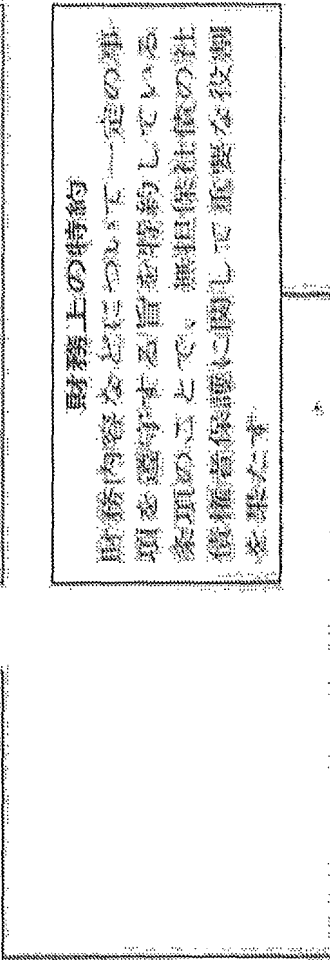 財務上の特約
財務内容などについて一定の事
項を遵守する旨を特約している
条項のことで、無担保社債の社
債権者保護に関して重要な役割
を果たす